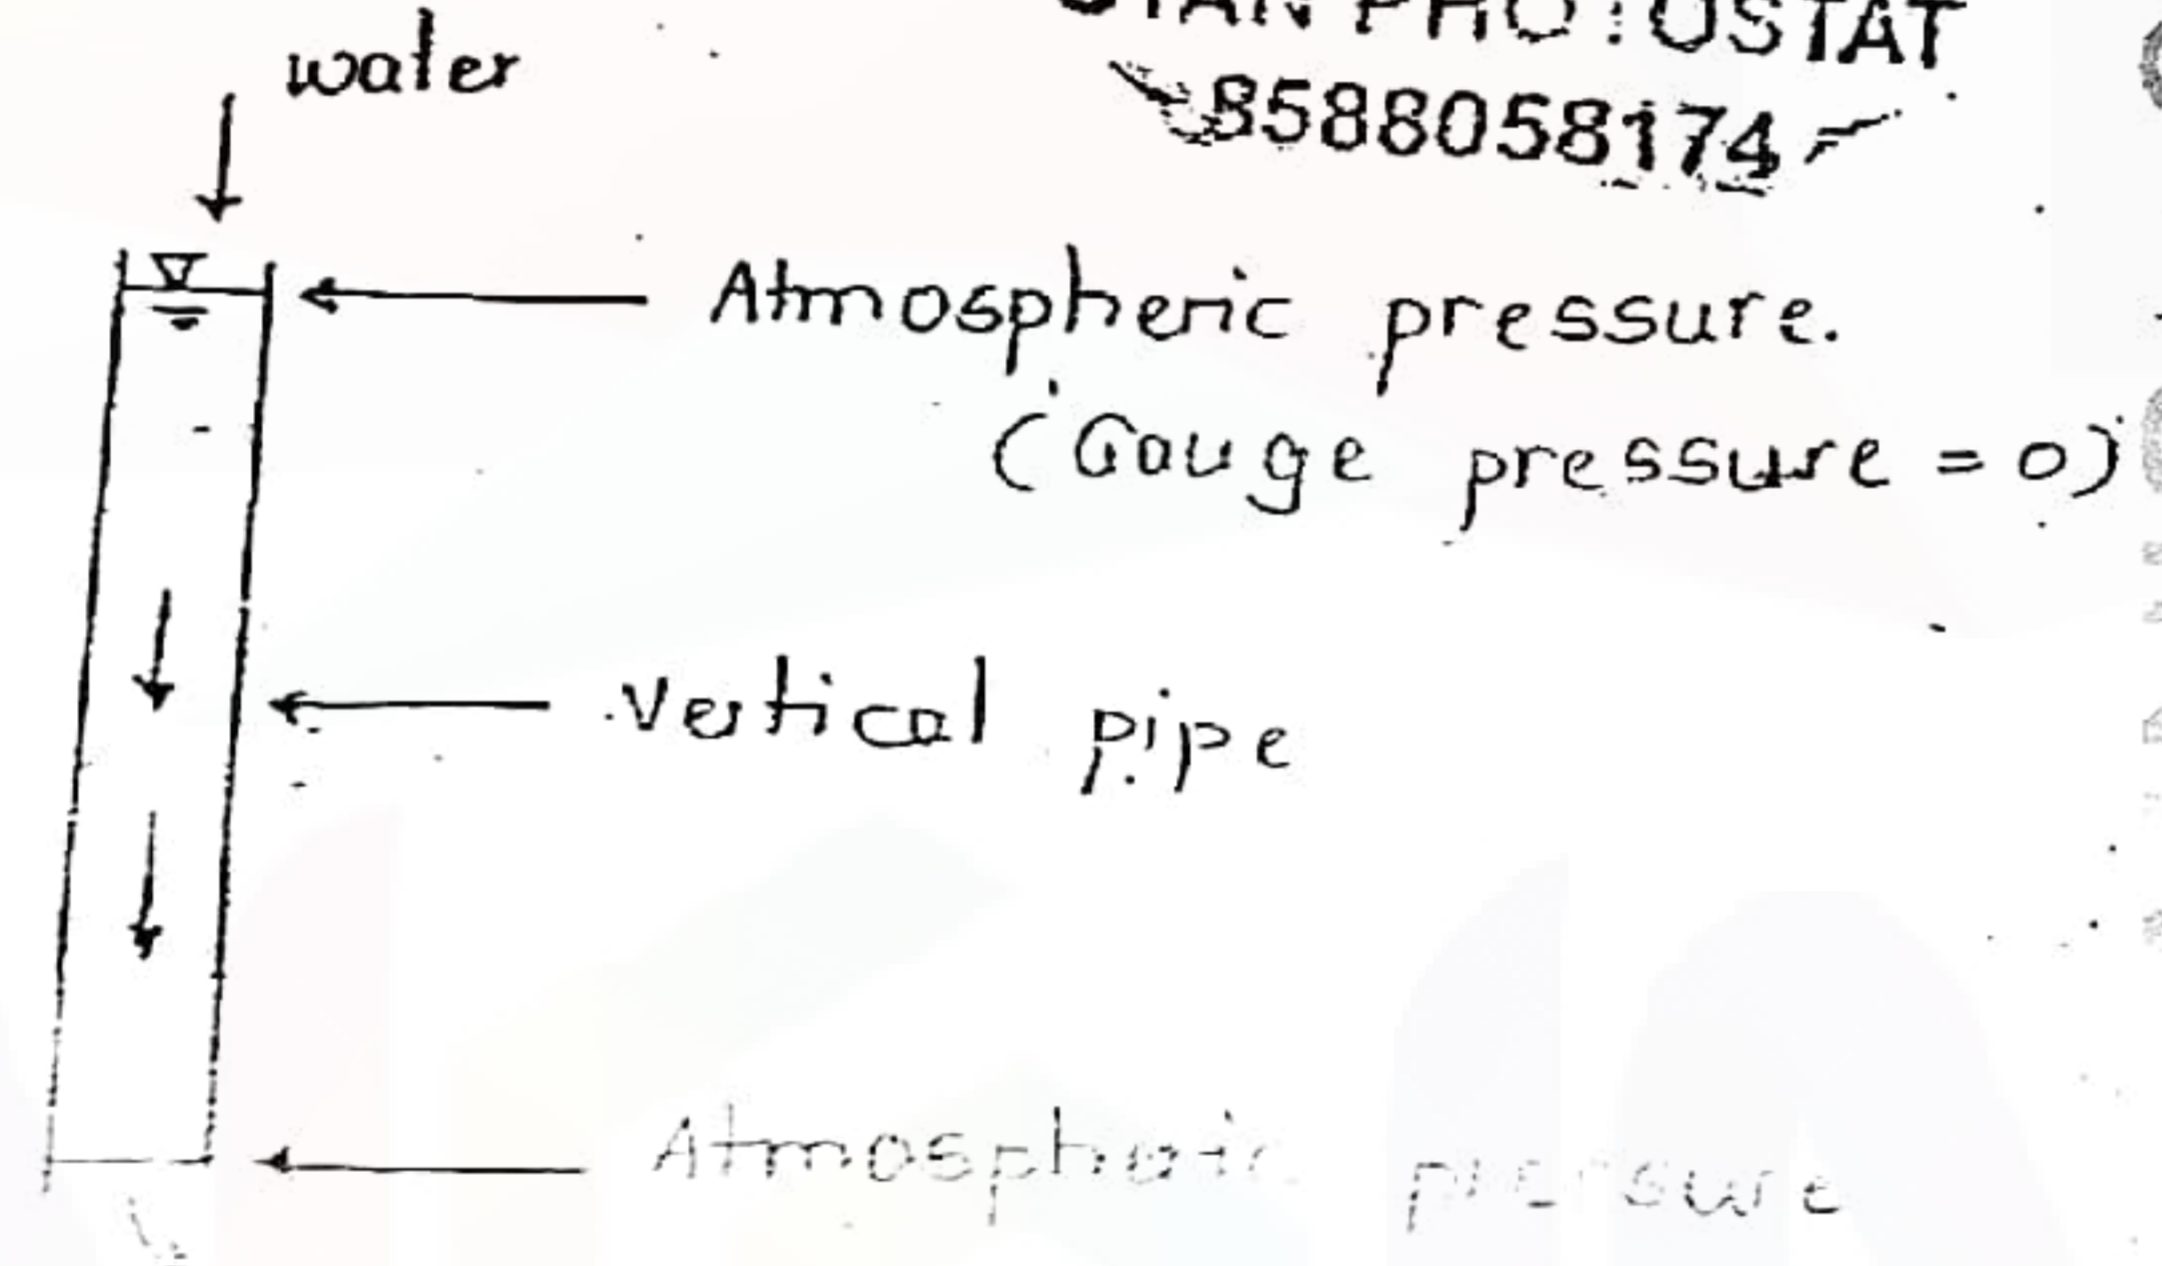 water
PHOTOSTAT
8588058174
Atmospheric pressure.
(Gauge pressure = 0)
Vertical pipe
Atmospheric pressure